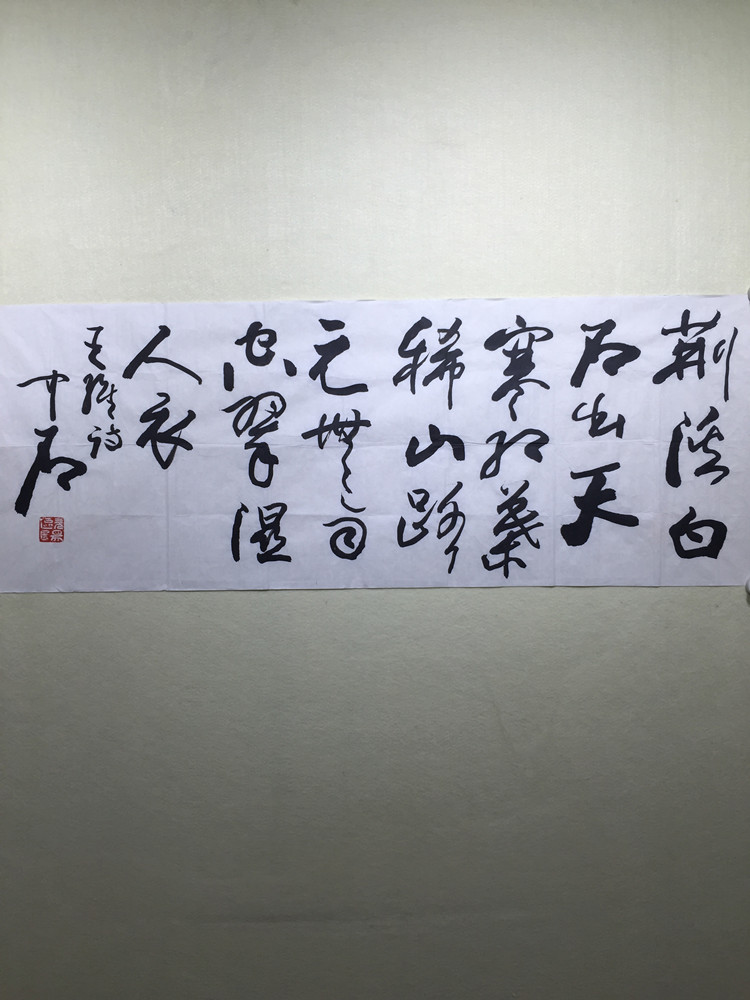 荆溪白
石出天
寒红葉
稀山路
元無雨
空翠湿
人衣
王维诗
中石